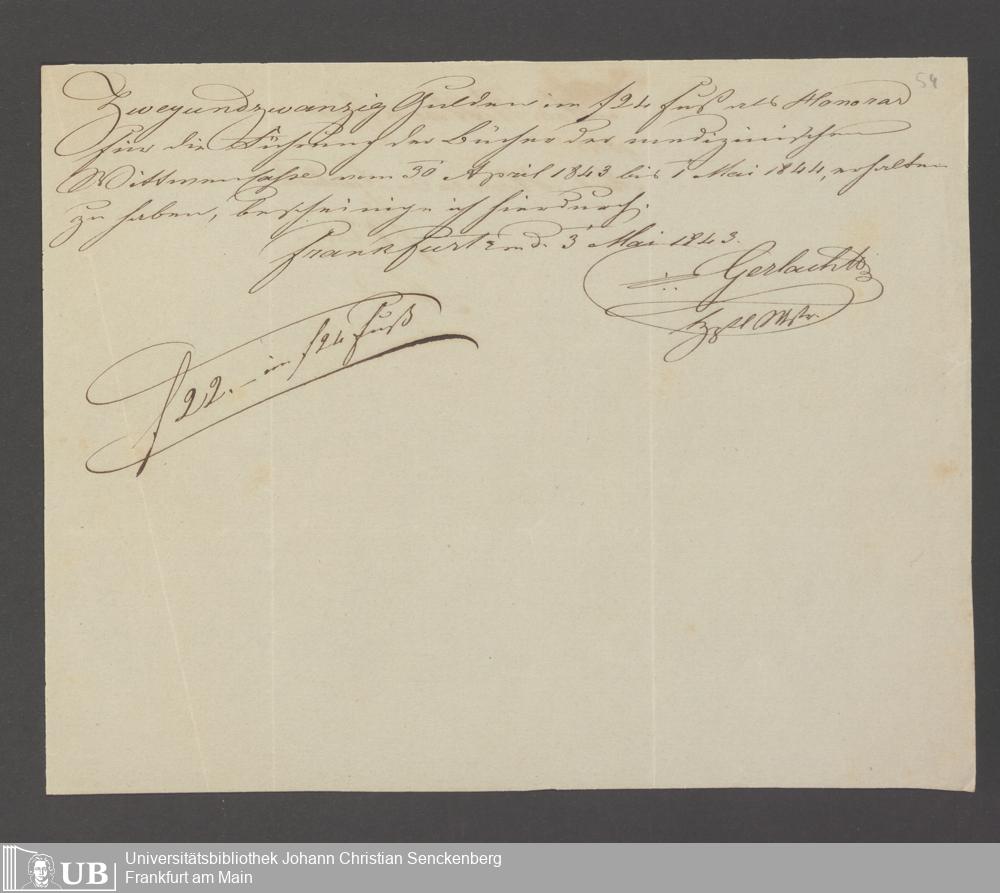 54
Zweyundzwanzig Gulden im f 24 Fuß als Honorar
für die Führung der Bücher der medizinischen
Wittwen Casse vom 30 April 1843 bis 1 Mai 1844, erhalten
zu haben, bescheinige ich hierdurch.
Frankfurt d. 3 Mai 1843.
Gerlach
f 22.- im f 24 Fuß
UB
Universitätsbibliothek Johann Christian Senckenberg
Frankfurt am Main